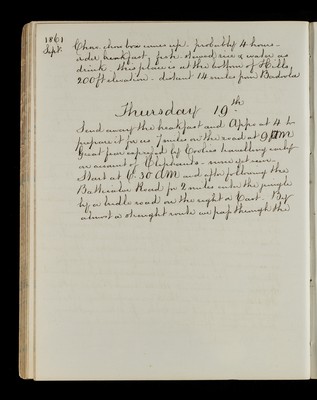 1861
Sept.
Chow chow box comes up. probably 4 hours -
order breakfast. fish. stewed rice & water as
drink. This place is at the bottom of Hills,
200 ft elevation - distant 14 miles from Badulla
Thursday 19th
Send away the breakfast and Appo at 4 to
prepare it for us 7 miles on the road at 9 AM
Great fear expressed by Coolies travelling early
on account of Elephants -
Start at 6.30 AM and after following the
Batticaloa Road for 2 miles enter the jungle
by a bridle road on the right or East. By
almost a straight route we pass through the